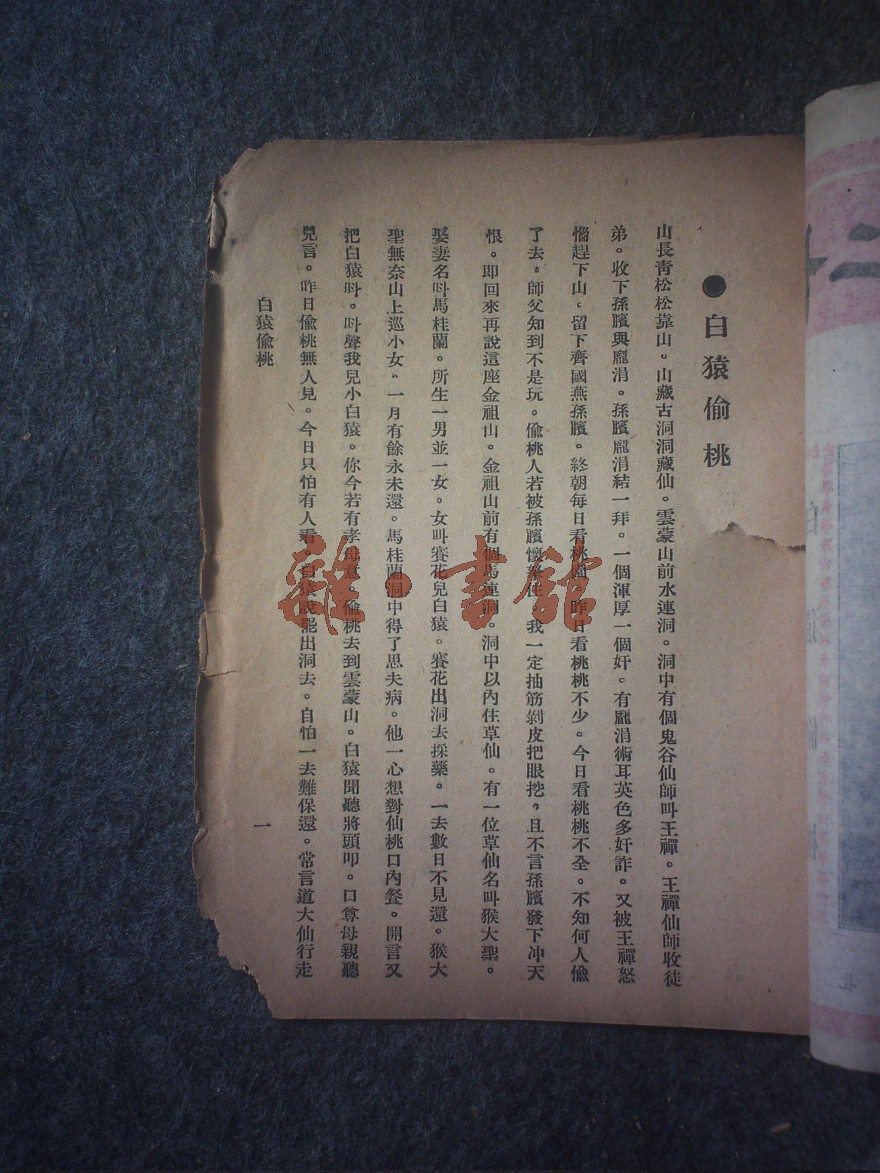 ●白猿偷桃
山長青松松靠山。山藏古洞洞藏仙。雲蒙山前水連洞。洞中有個鬼谷仙師叫王禪。王禪仙師收徒
弟。收下孫臏與龐涓。孫臏龐涓結一拜。一個渾厚一個奸。有龐涓術耳英色多奸詐。又被王禪怒
惱趕下山。留下齊國燕孫臏。終朝每日看桃園。昨日看桃桃不少。今日看桃桃不全。不知何人偸
了去。師父知到不是玩。偸桃人若被孫臏懷拏住。我一定抽筋剝皮把眼挖。且不言孫臏發下冲天
恨。即回來再說這座金祖山。金祖山前有個馬連洞。洞中以內住草仙。有一位草仙名叫猴大聖。
娶妻名叫馬桂蘭。所生一男並一女。女叫賽花兒白猿。賽花出洞去採藥。一去數日不見還。猴大
聖無奈山上巡小女。一月有餘永未還。馬桂蘭洞中得了思夫病。他一心想對仙桃口內餐。開言又
把白猿叫。叫聲我兒小白猿。你今若有孝母意。偸桃去到雲蒙山。白猿聞聽將頭叩。口尊母親聽
兒言。昨日偸桃無人見。今日只怕有人看。白猿說罷出洞去。自怕一去難保還。常言道大仙行走
白猿偷桃
一
雜·書館
二